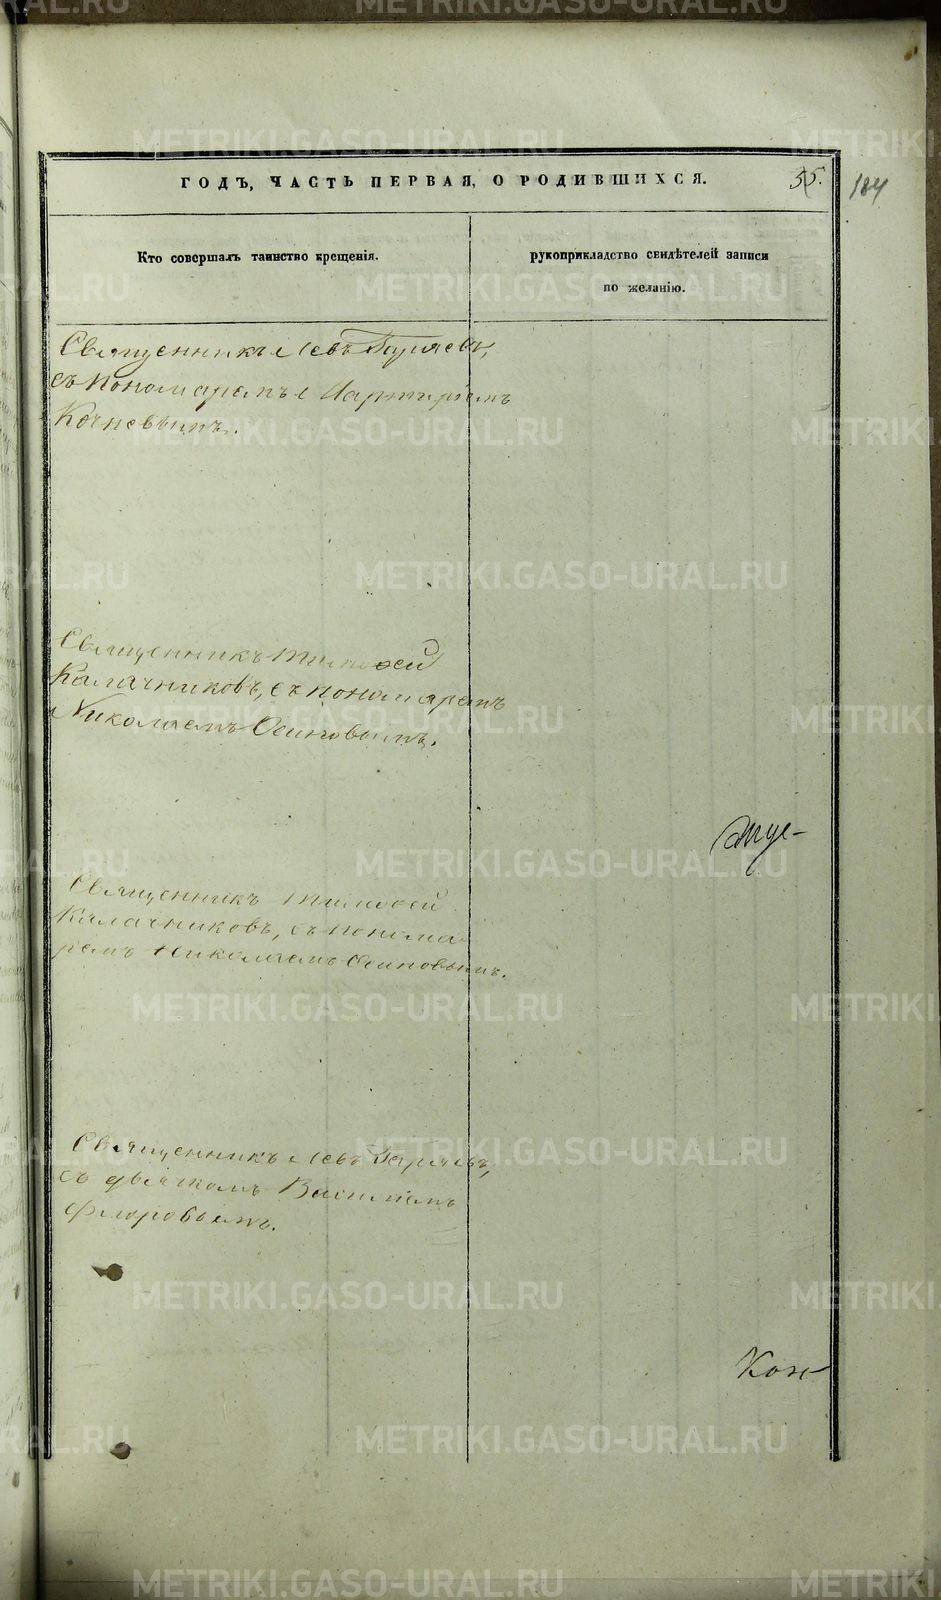 METRIKI.GASO-URAL.RU
ГОДЪ, ЧАСТЬ ПЕРВАЯ, О РОДИВШИХСЯ.
35.
184
Кто совершалъ таинство крещенія.
рукоприкладство свидѣтелей записи
по желанію.
Священникъ Левъ Гаряевъ,
съ пономаремъ
Кочневымъ.
Священникъ Тимофей
Калачниковъ, съ пономаремъ
Николаемъ Осиповымъ.
Священникъ Тимофей
Калачниковъ, съ понома
ремъ Николаемъ Осиповымъ.
Священникъ Левъ Гаряевъ,
съ дьячкомъ Василіемъ
Флоровымъ.